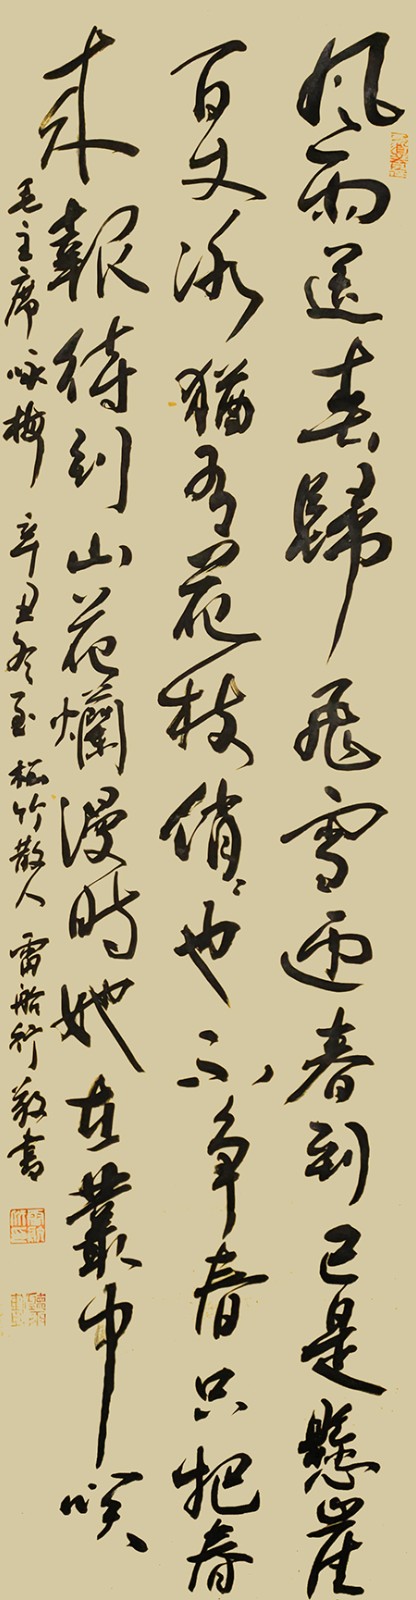 風雨送春歸飛雪迎春到已是懸崖
百丈冰猶有花枝俏俏也不争春只把春
来報待到山花爛漫時她在叢中咲
毛主席咏梅 辛丑冬至 松竹散人 雷船行敬書